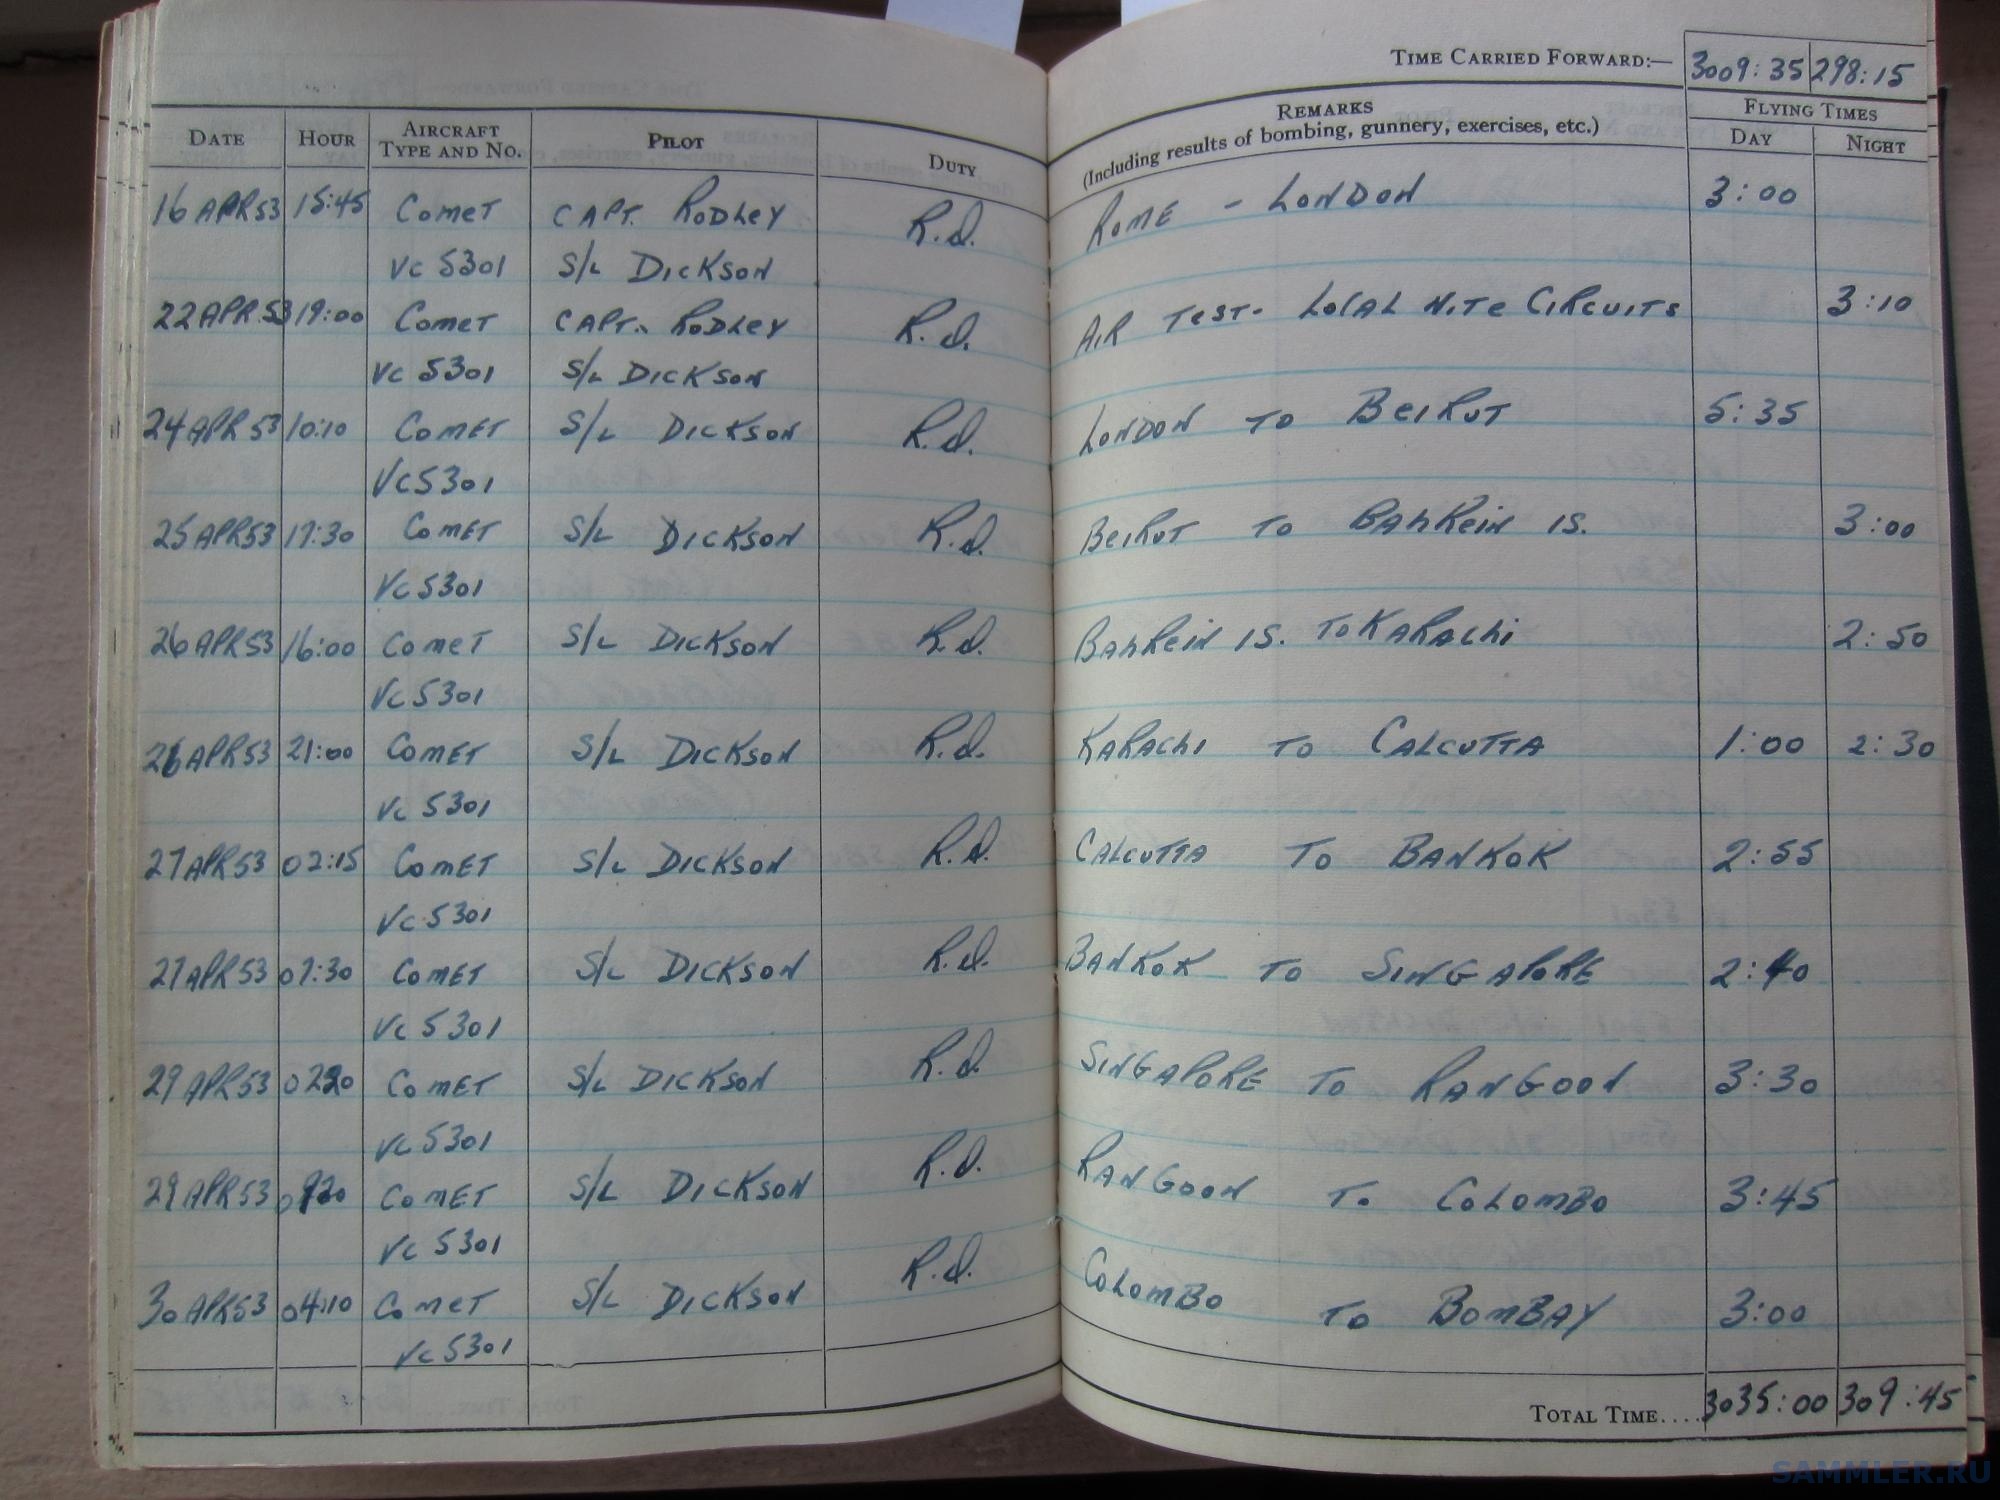 TIME CARRIED FORWARD:— 3009:35 298:15
DATE HOUR AIRCRAFT TYPE AND NO. PILOT DUTY REMARKS (Including results of bombing, gunnery, exercises, etc.) FLYING TIMES DAY NIGHT
16 APR 53 15:45 COMET CAPT. RODLEY R.O. ROME - LONDON 3:00
VC 5301 S/L DICKSON
22 APR 53 19:00 COMET CAPT. RODLEY R.O. AIR TEST- LOCAL NITE CIRCUITS 3:10
VC 5301 S/L DICKSON
24 APR 53 10:10 COMET S/L DICKSON R.O. LONDON TO BEIRUT 5:35
VC 5301
25 APR 53 17:30 COMET S/L DICKSON R.O. BEIRUT TO BAHREIN IS. 3:00
VC 5301
26 APR 53 16:00 COMET S/L DICKSON R.O. BAHREIN IS. TO KARACHI 2:50
VC 5301
26 APR 53 21:00 COMET S/L DICKSON R.O. KARACHI TO CALCUTTA 1:00 2:30
VC 5301
27 APR 53 02:15 COMET S/L DICKSON R.O. CALCUTTA TO BANKOK 2:55
VC 5301
27 APR 53 07:30 COMET S/L DICKSON R.O. BANKOK TO SINGAPORE 2:40
VC 5301
29 APR 53 0220 COMET S/L DICKSON R.O. SINGAPORE TO RANGOON 3:30
VC 5301
29 APR 53 COMET S/L DICKSON R.O. RANGOON TO COLOMBO 3:45
VC 5301
30 APR 53 04:10 COMET S/L DICKSON R.O. COLOMBO TO BOMBAY 3:00
VC 5301
TOTAL TIME.... 3035:00 309:45
SAMMLER.RU